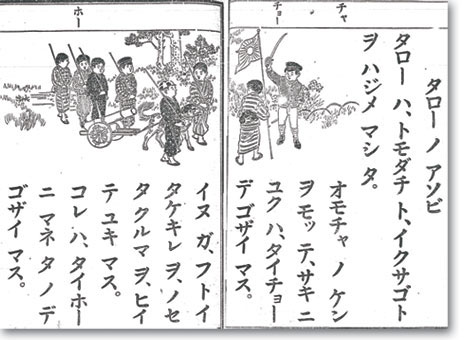 チャ
チョー
タロー ノ アソビ
タロー ハ、トモダチ ト、イクサゴト
ヲ ハジメ マシ タ。
オモチャ ノ ケン
ヲ モッ テ、サキ ニ
ユク ハ、タイチョー
デ ゴザイ マス。
ホー
イヌ ガ、フトイ
タケキレ ヲ、ノセ
タ クルマ ヲ、ヒイ
テ ユキ マス。
コレ ハ、タイホー
ニ マネ タ ノ デ
ゴザイ マス。